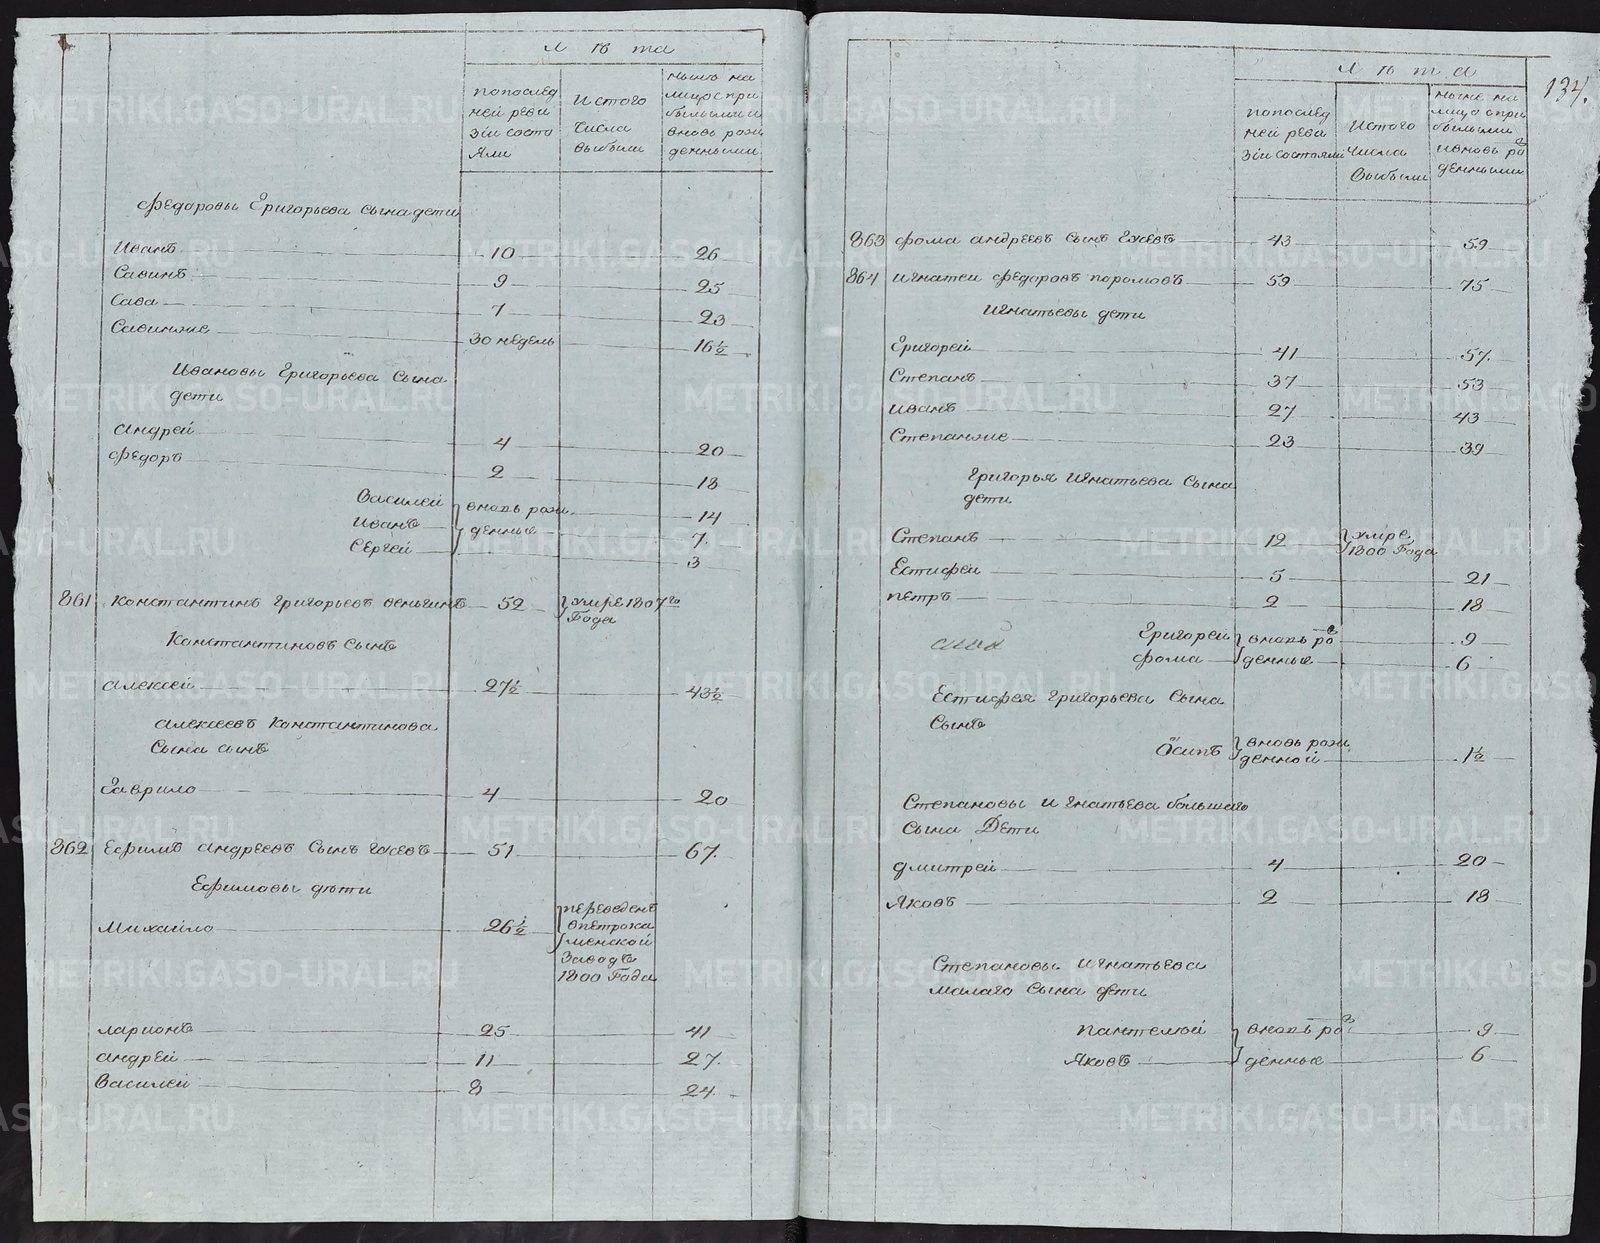 Лѣта
попослед
ней реви
зiи состо
яли
Истого
числа
выбыли
ныне на
лицо спри
былыми и
вновь рож
денными
Федоровы Григорьева сына дети
Иванъ 10 26
Савинъ 9 25
Сава 7 23
Савинже 30 недель 16½
Ивановы Григорьева Сына
дети
Андрей 4 20
Федоръ 2 18
Василей вновь рож 14
Иванъ денные 7.
Сергей 3
861 Константинъ Григорьевъ 52 умре 1807го
Года
Константиновъ Сынъ
Алексей 27½ 43½
Алексеевъ Константинова
Сына сынъ
Гаврило 4 20
862 Ефимъ Андреевъ Сынъ Гусевъ 51 67.
Ефимовы дѣти
Михайло 26½ переведенъ
впетрока
менской
Заводъ
1800 Года
Ларионъ 25 41
Андрей 11 27.
Василей 8 24.
134.
Лѣта
попослед
ней реви
зiи состояли
Истого
Числа
Выбыли
ныне на
лицо спри
былыми
ивновь ро
денными
863 Фома Андреевъ Сынъ Гусевъ 43 59
864 Игнатей Федоровъ поромовъ 59 75
Игнатьевы дети
Григорей 41 57.
Степанъ 37 53
Иванъ 27 43
Степанже 23 39
Григорья Игнатьева Сына
дети
Степанъ 12 умре
1800 Года
Естифей 5 21
петръ 2 18
Григорей вновь ро 9
Фома денные 6
Естифея Григорьева Сына
Сынъ
Осипъ вновь рож
денной 1½
Степановы Игнатьева большаго
сына Дети
Дмитрей 4 20
Яковъ 2 18
Степановы Игнатьева
малаго Сына дети
Пантелей вновь ро 9
Яковъ денные 6
METRIKI.GASO-URAL.RU